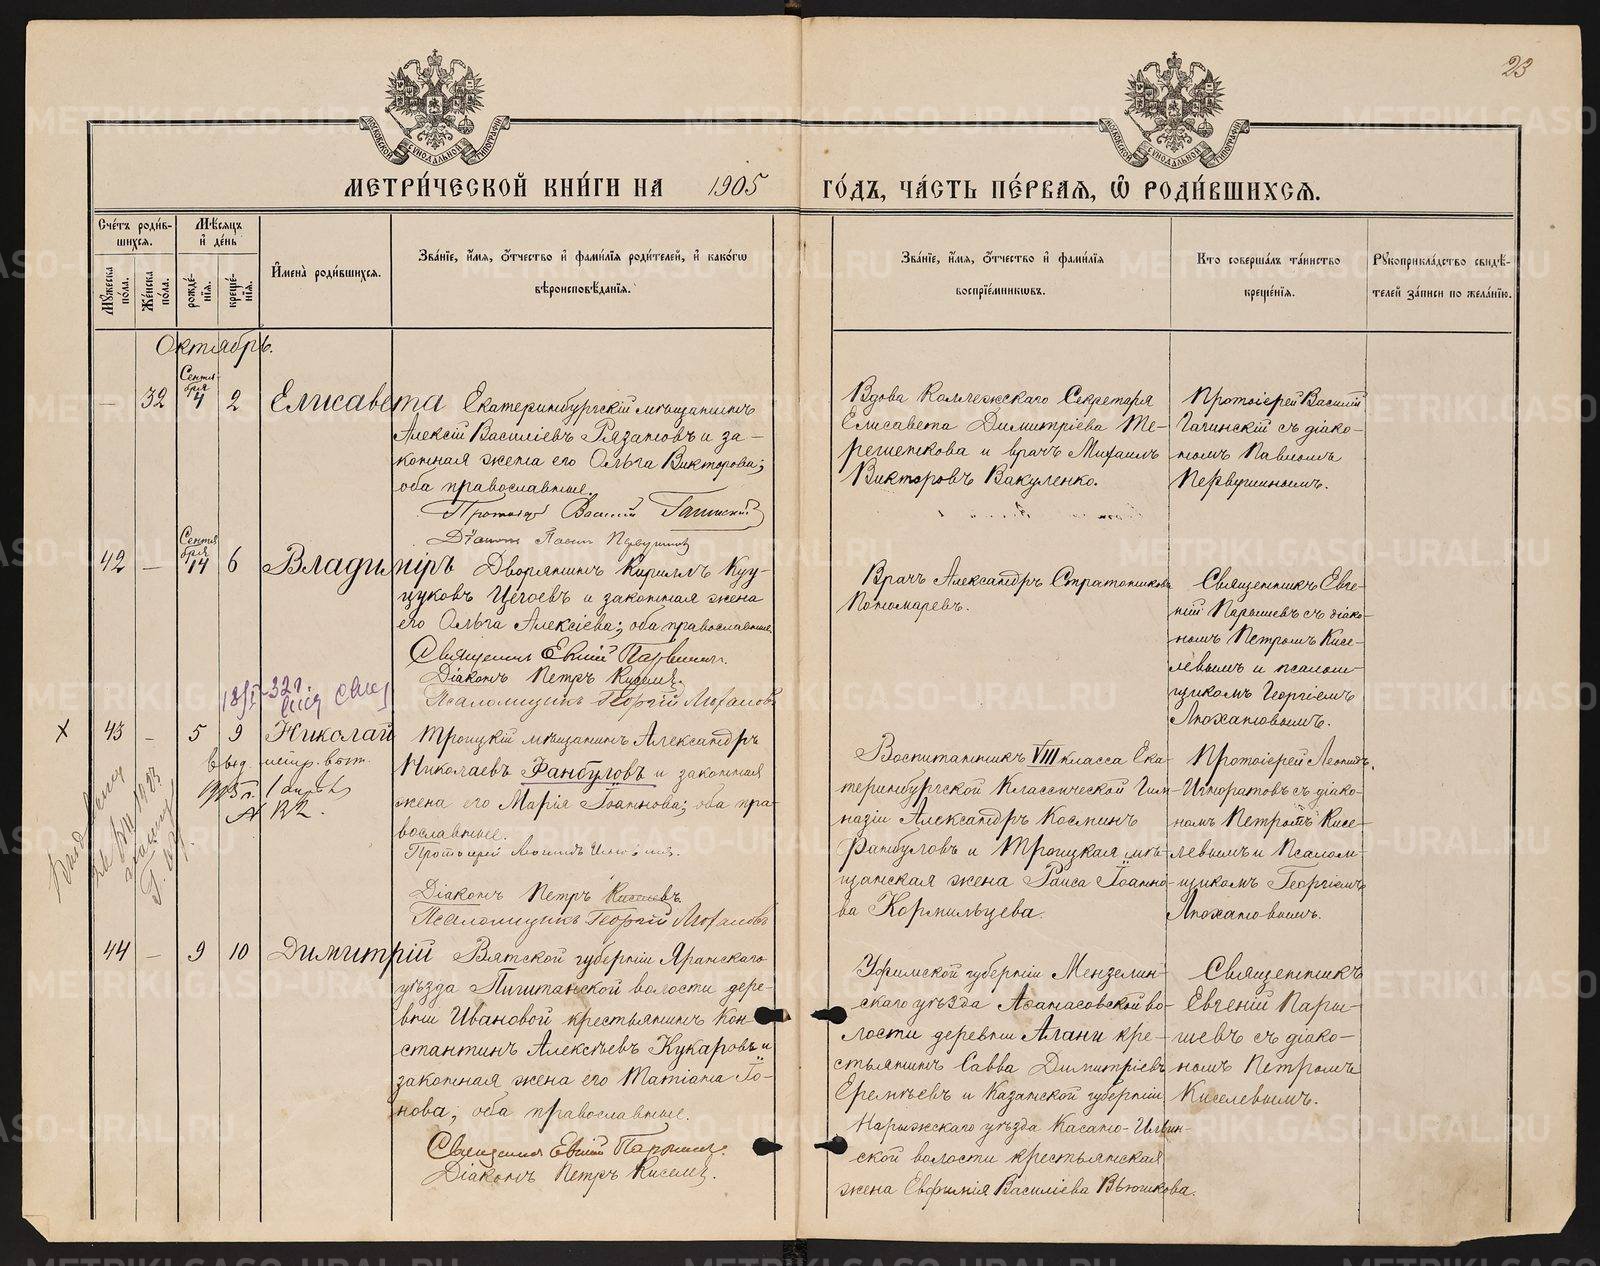 23
МОСКОВСКОЙ СѴНОДАЛЬНОЙ ТИПОГРАФІИ
МОСКОВСКОЙ СѴНОДАЛЬНОЙ ТИПОГРАФІИ
МЕТРИ́ЧЕСКОЙ КНИ́ГИ НА 1905 ГО́ДЪ, ЧА́СТЬ ПЕ́РВАѦ, Ѽ РОДИ́ВШИХСѦ.
Сче́тъ роди́в-
шихсѧ.
Мꙋжеска по́ла.
Же́нска по́ла.
Мѣ́сяцъ и҆ де́нь
рожде́-
нїѧ.
креще́-
нїѧ.
И҆мена̀ роди́вшихсѧ.
Зва́нїе, и҆́мѧ, ѻ҆́тчество и҆ фами́лїѧ роди́телей, и҆ како́гѡ
вѣроисповѣ́данїѧ.
Зва́нїе, и҆́мѧ, ѻ҆́тчество и҆ фами́лїѧ
воспрїе́мникѡвъ.
Кто̀ соверша́лъ та́инство
креще́нїѧ.
Рꙋкоприкла́дство свидѣ́-
телей за́писи по жела́нїю.
Октябрь.
— 32 Сентя-
бря
4 2 Елисавета Екатеринбургскій мѣщанинъ
Алексій Василіевъ Рязановъ и за-
конная жена его Ольга Викторова;
оба православные.
Василій
Вдова Коллежскаго Секретаря
Елисавета Димитріева Те-
решенкова и врачъ Михаилъ
Викторовъ Вакуленко.
Протоіерей Василій
Гагинскій съ діако-
номъ Павломъ
Первушинымъ.
42 — Сентя
бря
14 6 Владиміръ Дворянинъ Кириллъ Куу-
цуковъ Цегоевъ и законная жена
его Ольга Алексіева; оба православные.
Священникъ Евгеній Парышевъ.
Діаконъ Петръ Киселевъ.
Псаломщикъ Георгій Люхановъ
Врачъ Александръ Стратониковъ
Пономаревъ.
Священникъ Евге-
ній Парышевъ съ діако-
номъ Петромъ Кисе-
левымъ и псалом-
щикомъ Георгіемъ
Люхановымъ.
× 43 — 5 9 Николай Троицкій мѣщанинъ Александръ
Николаевъ Фанбуловъ и законная
жена его Марія Іоаннова; оба пра-
вославные.
Протоіерей Леонидъ
Діаконъ Петръ Киселевъ.
Псаломщикъ Георгій Люхановъ
Воспитанникъ VIII класса Ека-
теринбургской Классической Гим-
назіи Александръ Косминъ
Фанбуловъ и Троицкая мѣ-
щанская жена Раиса Іоанно-
ва Кормильцева.
Протоіерей Леонидъ
Игноратовъ съ діако-
номъ Петромъ Кисе-
левымъ и Псалом-
щикомъ Георгіемъ
Люхановымъ.
44 — 9 10 Димитрій Вятской губерніи Яранскаго
уѣзда Пиштанской волости дере-
вни Ивановой крестьянинъ Кон-
стантинъ Алексѣевъ Кукаровъ и
законная жена его Татіана Іо-
нова, оба православные.
Священникъ Евгеній Парышевъ.
Діаконъ Петръ Киселевъ.
Уфимской губерніи Мензелин-
скаго уѣзда Афанасовской во-
лости деревни Алани кре-
стьянинъ Савва Димитріевъ
Еремѣевъ и Казанской губерніи
уѣзда Касано-Ильин-
ской волости крестьянская
жена Евфимія Василіева Вьюшкова.
Священникъ
Евгеній Пары-
шевъ съ діако-
номъ Петромъ
Киселевымъ.